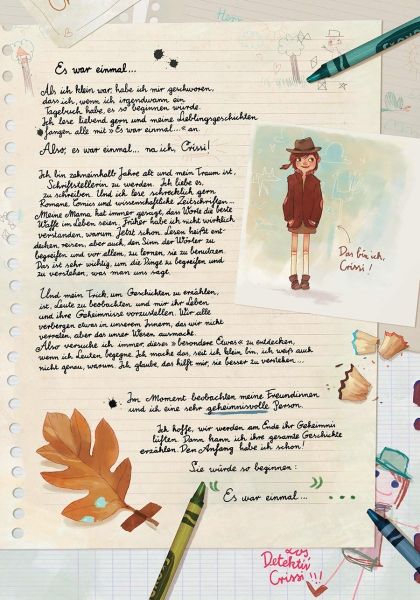 Es war einmal...
Als ich klein war, habe ich mir geschworen,
dass ich, wenn ich irgendwann ein
Tagebuch habe, es so beginnen würde.
Ich lese liebend gern und meine Lieblingsgeschichten
fangen alle mit »Es war einmal...« an.
Also, es war einmal... na, ich, Crissi!
Ich bin zehneinhalb Jahre alt und mein Traum ist,
Schriftstellerin zu werden. Ich liebe es,
zu schreiben. Und ich lese schrecklich gern
Romane, Comics und wissenschaftliche Zeitschriften...
Meine Mama hat immer gesagt, dass Worte die beste
Waffe im Leben seien. Früher habe ich nicht wirklich
verstanden, warum. Jetzt schon. Lesen heißt ent-
decken, reisen, aber auch, den Sinn der Wörter zu
begreifen und vor allem, zu lernen, sie zu benutzen.
Das ist sehr wichtig, um die Dinge zu begreifen und
zu verstehen, was man uns sagt.
Das bin ich,
Crissi!
Und mein Trick, um Geschichten zu erzählen,
ist, Leute zu beobachten und mir ihr Leben
und ihre Geheimnisse vorzustellen. Wir alle
verbergen etwas in unserem Innern, das wir nicht
verraten, aber das unser Wesen ausmacht.
Also versuche ich immer, dieses »besondere Etwas« zu entdecken,
wenn ich Leuten begegne. Ich mache das, seit ich klein bin, ich weiß auch
nicht genau, warum. Ich glaube, das hilft mir, sie besser zu verstehen...
Im Moment beobachten meine Freundinnen
und ich eine sehr geheimnisvolle Person.
Ich hoffe, wir werden am Ende ihr Geheimnis
lüften. Dann kann ich ihre gesamte Geschichte
erzählen. Den Anfang habe ich schon!
Sie würde so beginnen:
"Es war einmal..." ...
Detektiv
Crissi!!!